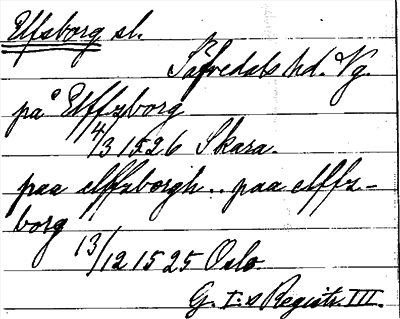 Elfsborg sl.
Säfvedals hd. Vg.
på Elffzborg
4/3 1526 Skara.
paa elffzborgh.. paa elffz-
borg
13/12 1525 Oslo.
G. I:s Registr. III.